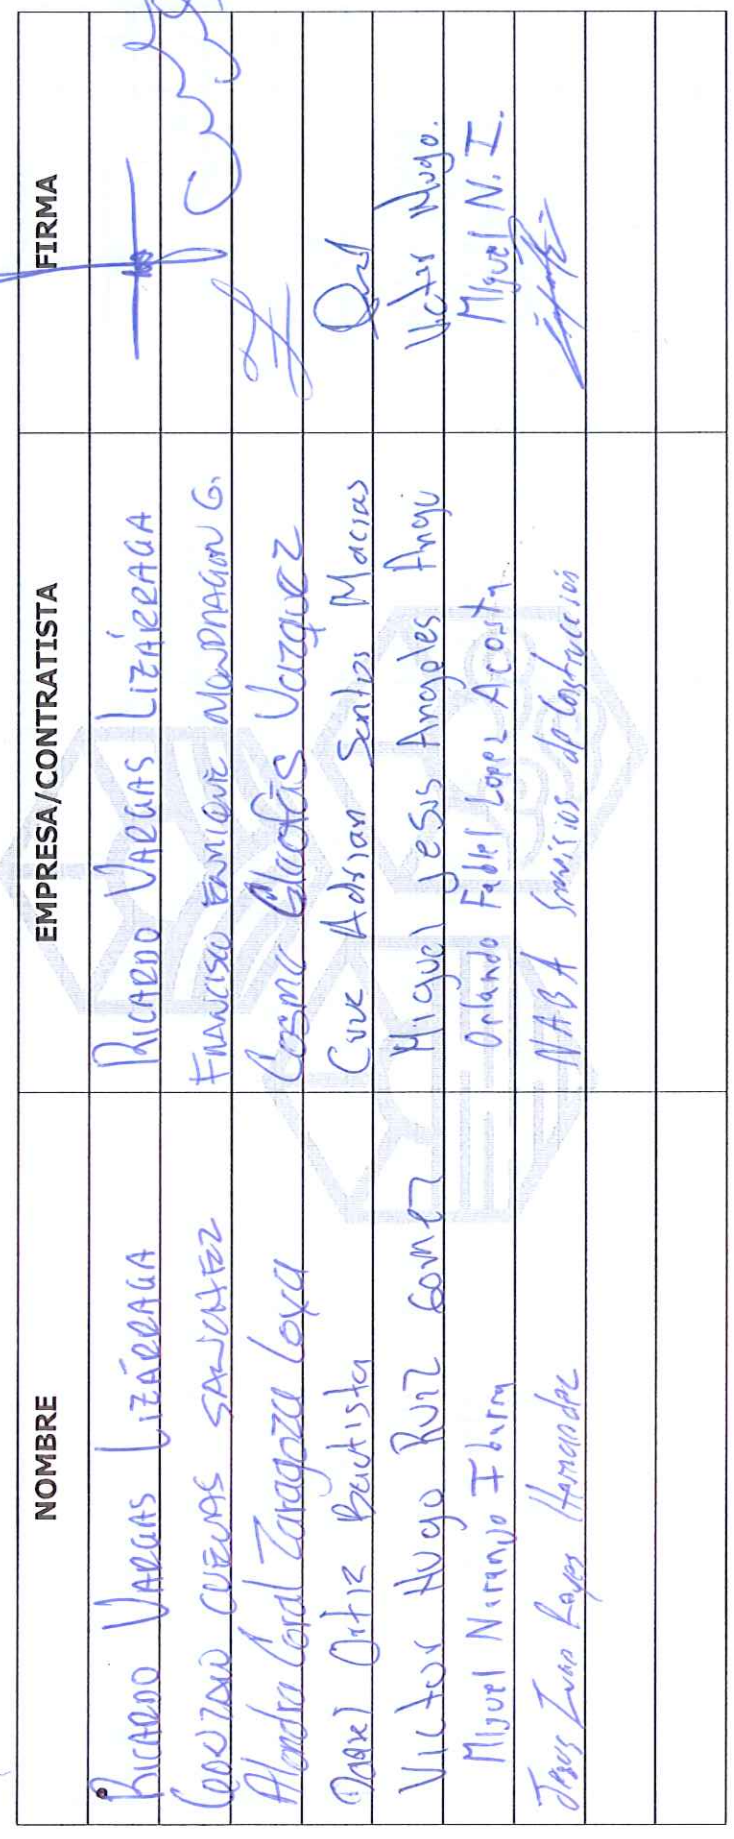 NOMBRE EMPRESA/CONTRATISTA FIRMA
RICARDO VARGAS LIZÁRRAGA RICARDO VARGAS LIZÁRRAGA
GONZALO CUEVAS SANCHEZ FRANCISCO ENRIQUE MONDRAGON G.
Alondra Coral Zaragoza Loya Cosme Vazquez
Ortiz Bautista Cruz Adrian Santos Macias
Victor Hugo Ruiz Gomez Miguel Jesus Angeles Angu Victor Hugo.
Miguel Naranjo Ibarra Orlando Fabiel Lopez Acosta Miguel N. I.
Jesus Ivan Reyes Hernandez NABA Servisios de Construccion